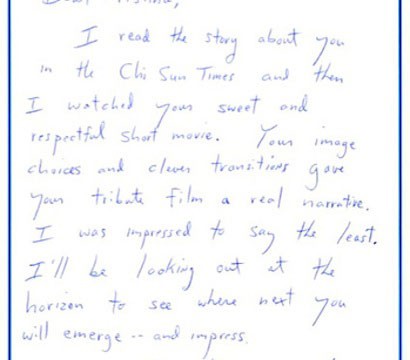 I read the story about you
in the Chi Sun Times and then
I watched your sweet and
respectful short movie. Your image
choices and clever transitions gave
your tribute film a real narrative.
I was impressed to say the least.
I'll be looking out at the
horizon to see where next you
will emerge -- and impress.